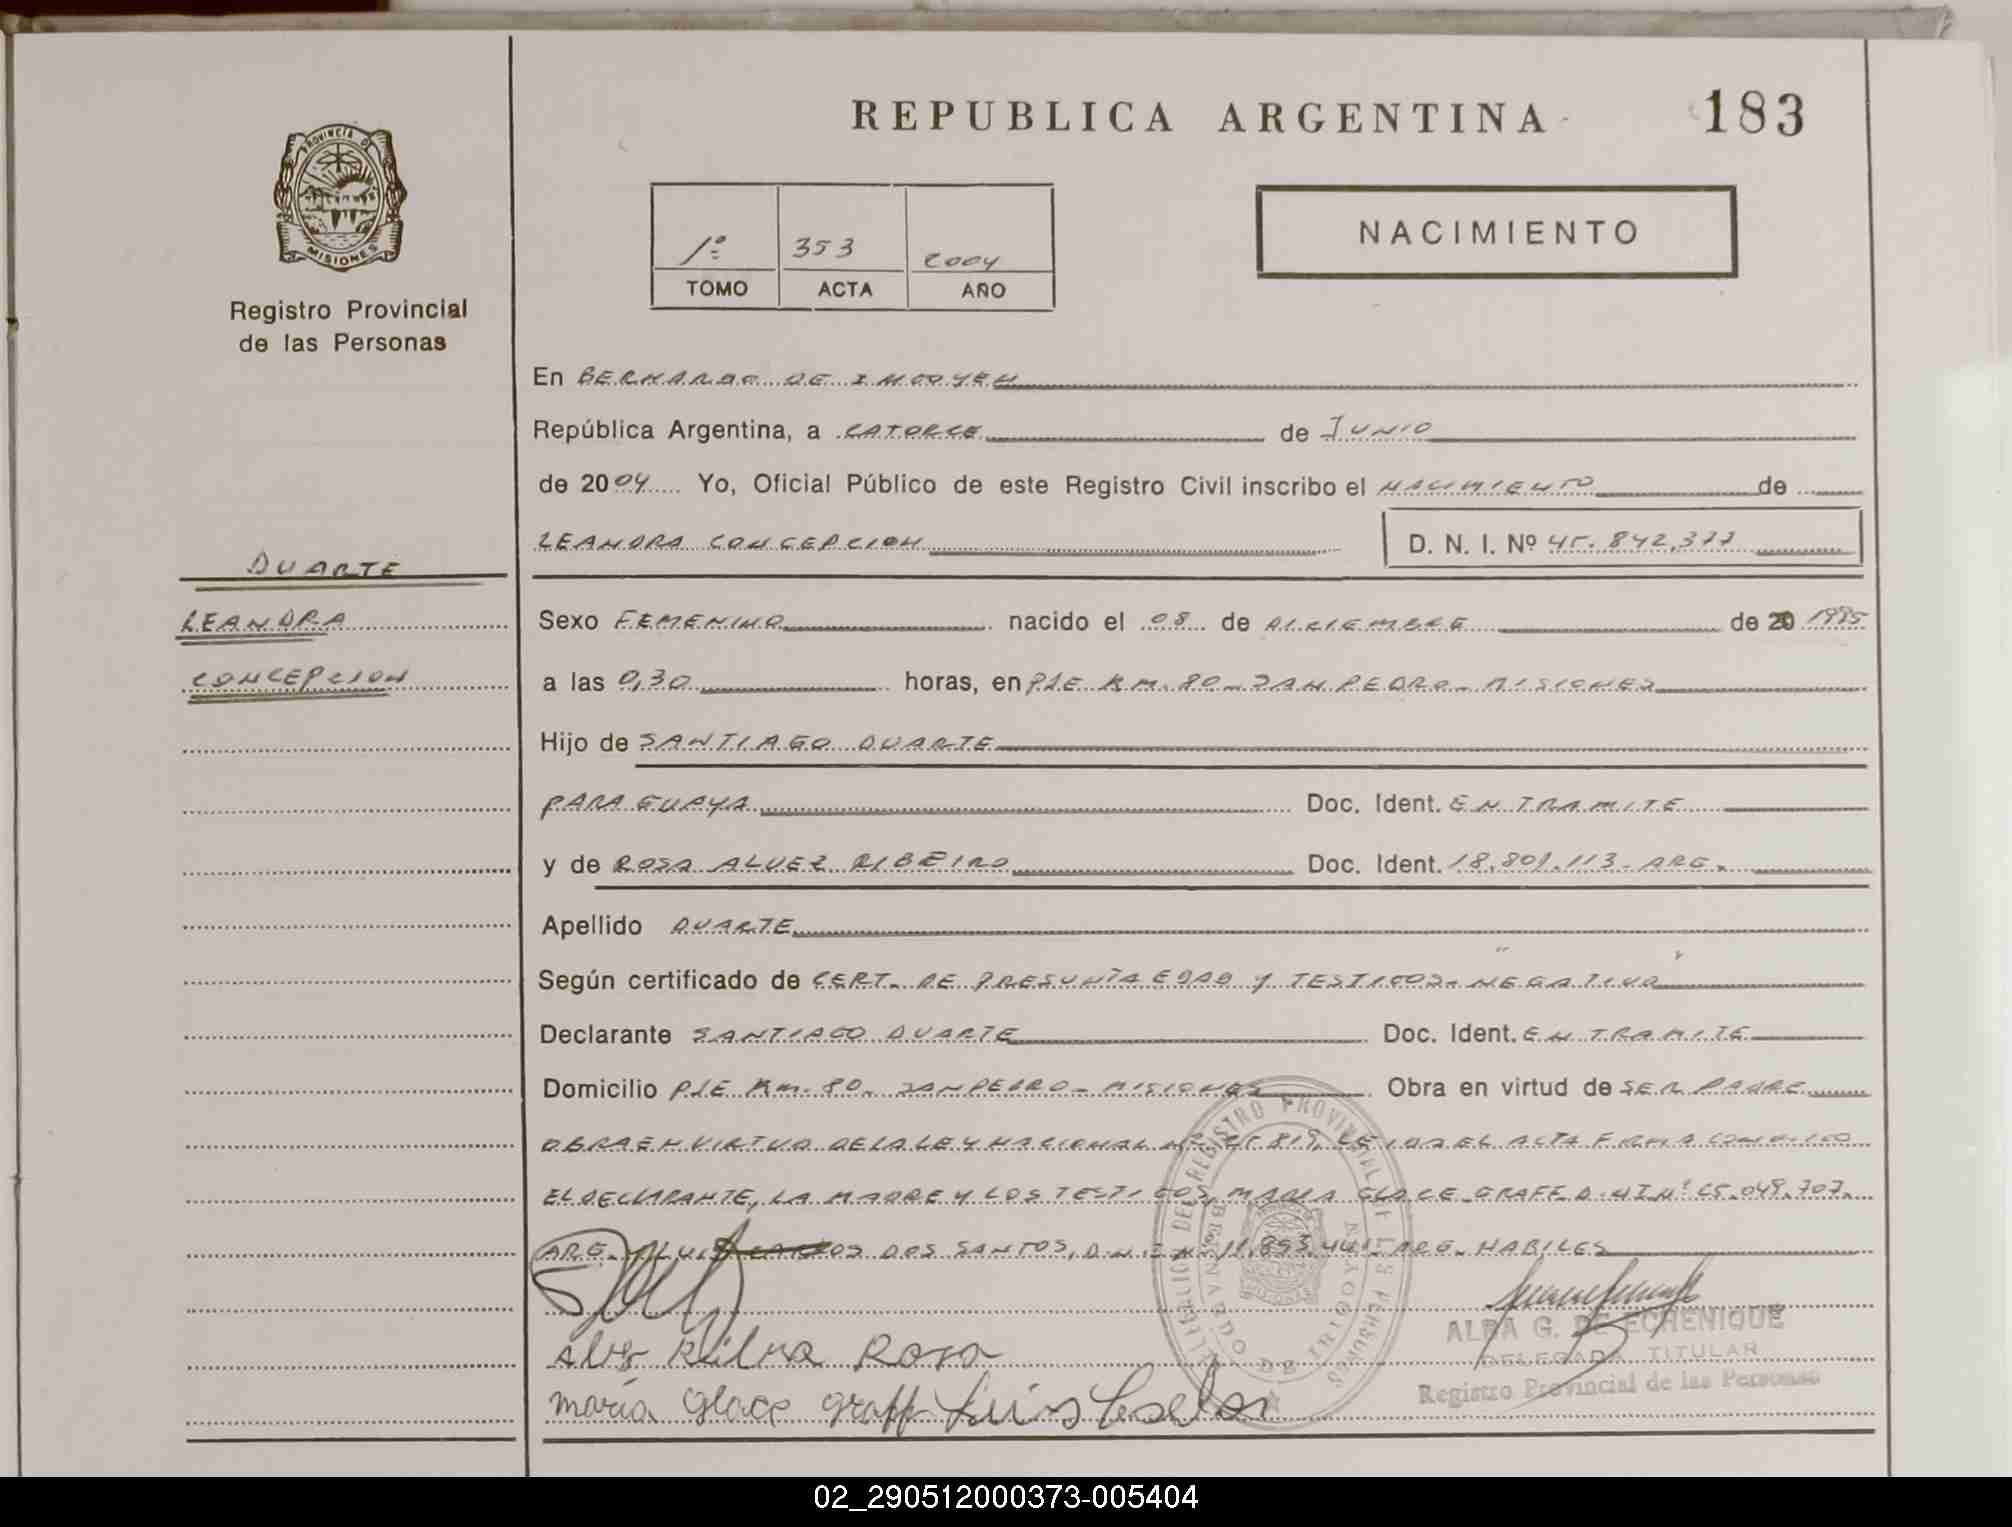 REPUBLICA ARGENTINA
183
PROVINCIA DE
MISIONES
Registro Provincial
de las Personas
1º 353 2004
TOMO ACTA AÑO
NACIMIENTO
En BERNARDO DE IRIGOYEN
República Argentina, a CATORCE de JUNIO
de 2004 Yo, Oficial Público de este Registro Civil inscribo el NACIMIENTO de
LEANDRA CONCEPCION D. N. I. Nº 45.842.377
DUARTE
LEANDRA
CONCEPCION
Sexo FEMENINO nacido el 08 de DICIEMBRE de 20 1985
a las 0,30 horas, en PJE KM. 80 - SAN PEDRO - MISIONES
Hijo de SANTIAGO DUARTE
PARAGUAYA Doc. Ident. EN TRAMITE
y de ROSA ALVEZ RIBEIRO Doc. Ident. 18.801.113 - ARG.
Apellido DUARTE
Según certificado de CERT. DE PRESUNTA EDAD Y TESTIGOS - NEGATIVO
Declarante SANTIAGO DUARTE Doc. Ident. EN TRAMITE
Domicilio PJE KM. 80 - SAN PEDRO - MISIONES Obra en virtud de SER PADRE
OBRA EN VIRTUD DE LA LEY NACIONAL Nº 25.819, LEIDA EL ACTA FIRMA CONMIGO
EL DECLARANTE, LA MADRE Y LOS TESTIGOS, MARIA GLACE GRAFF D.N.I Nº 25.049.707.
ARG. Y LUIS DOS SANTOS, D.N.I Nº 11.893.441 - ARG. HABILES
Rosa
ALBA G. DE ECHENIQUE
DELEGADA TITULAR
Registro Provincial de las Personas
maría Glace Graff Luis
02_290512000373-005404